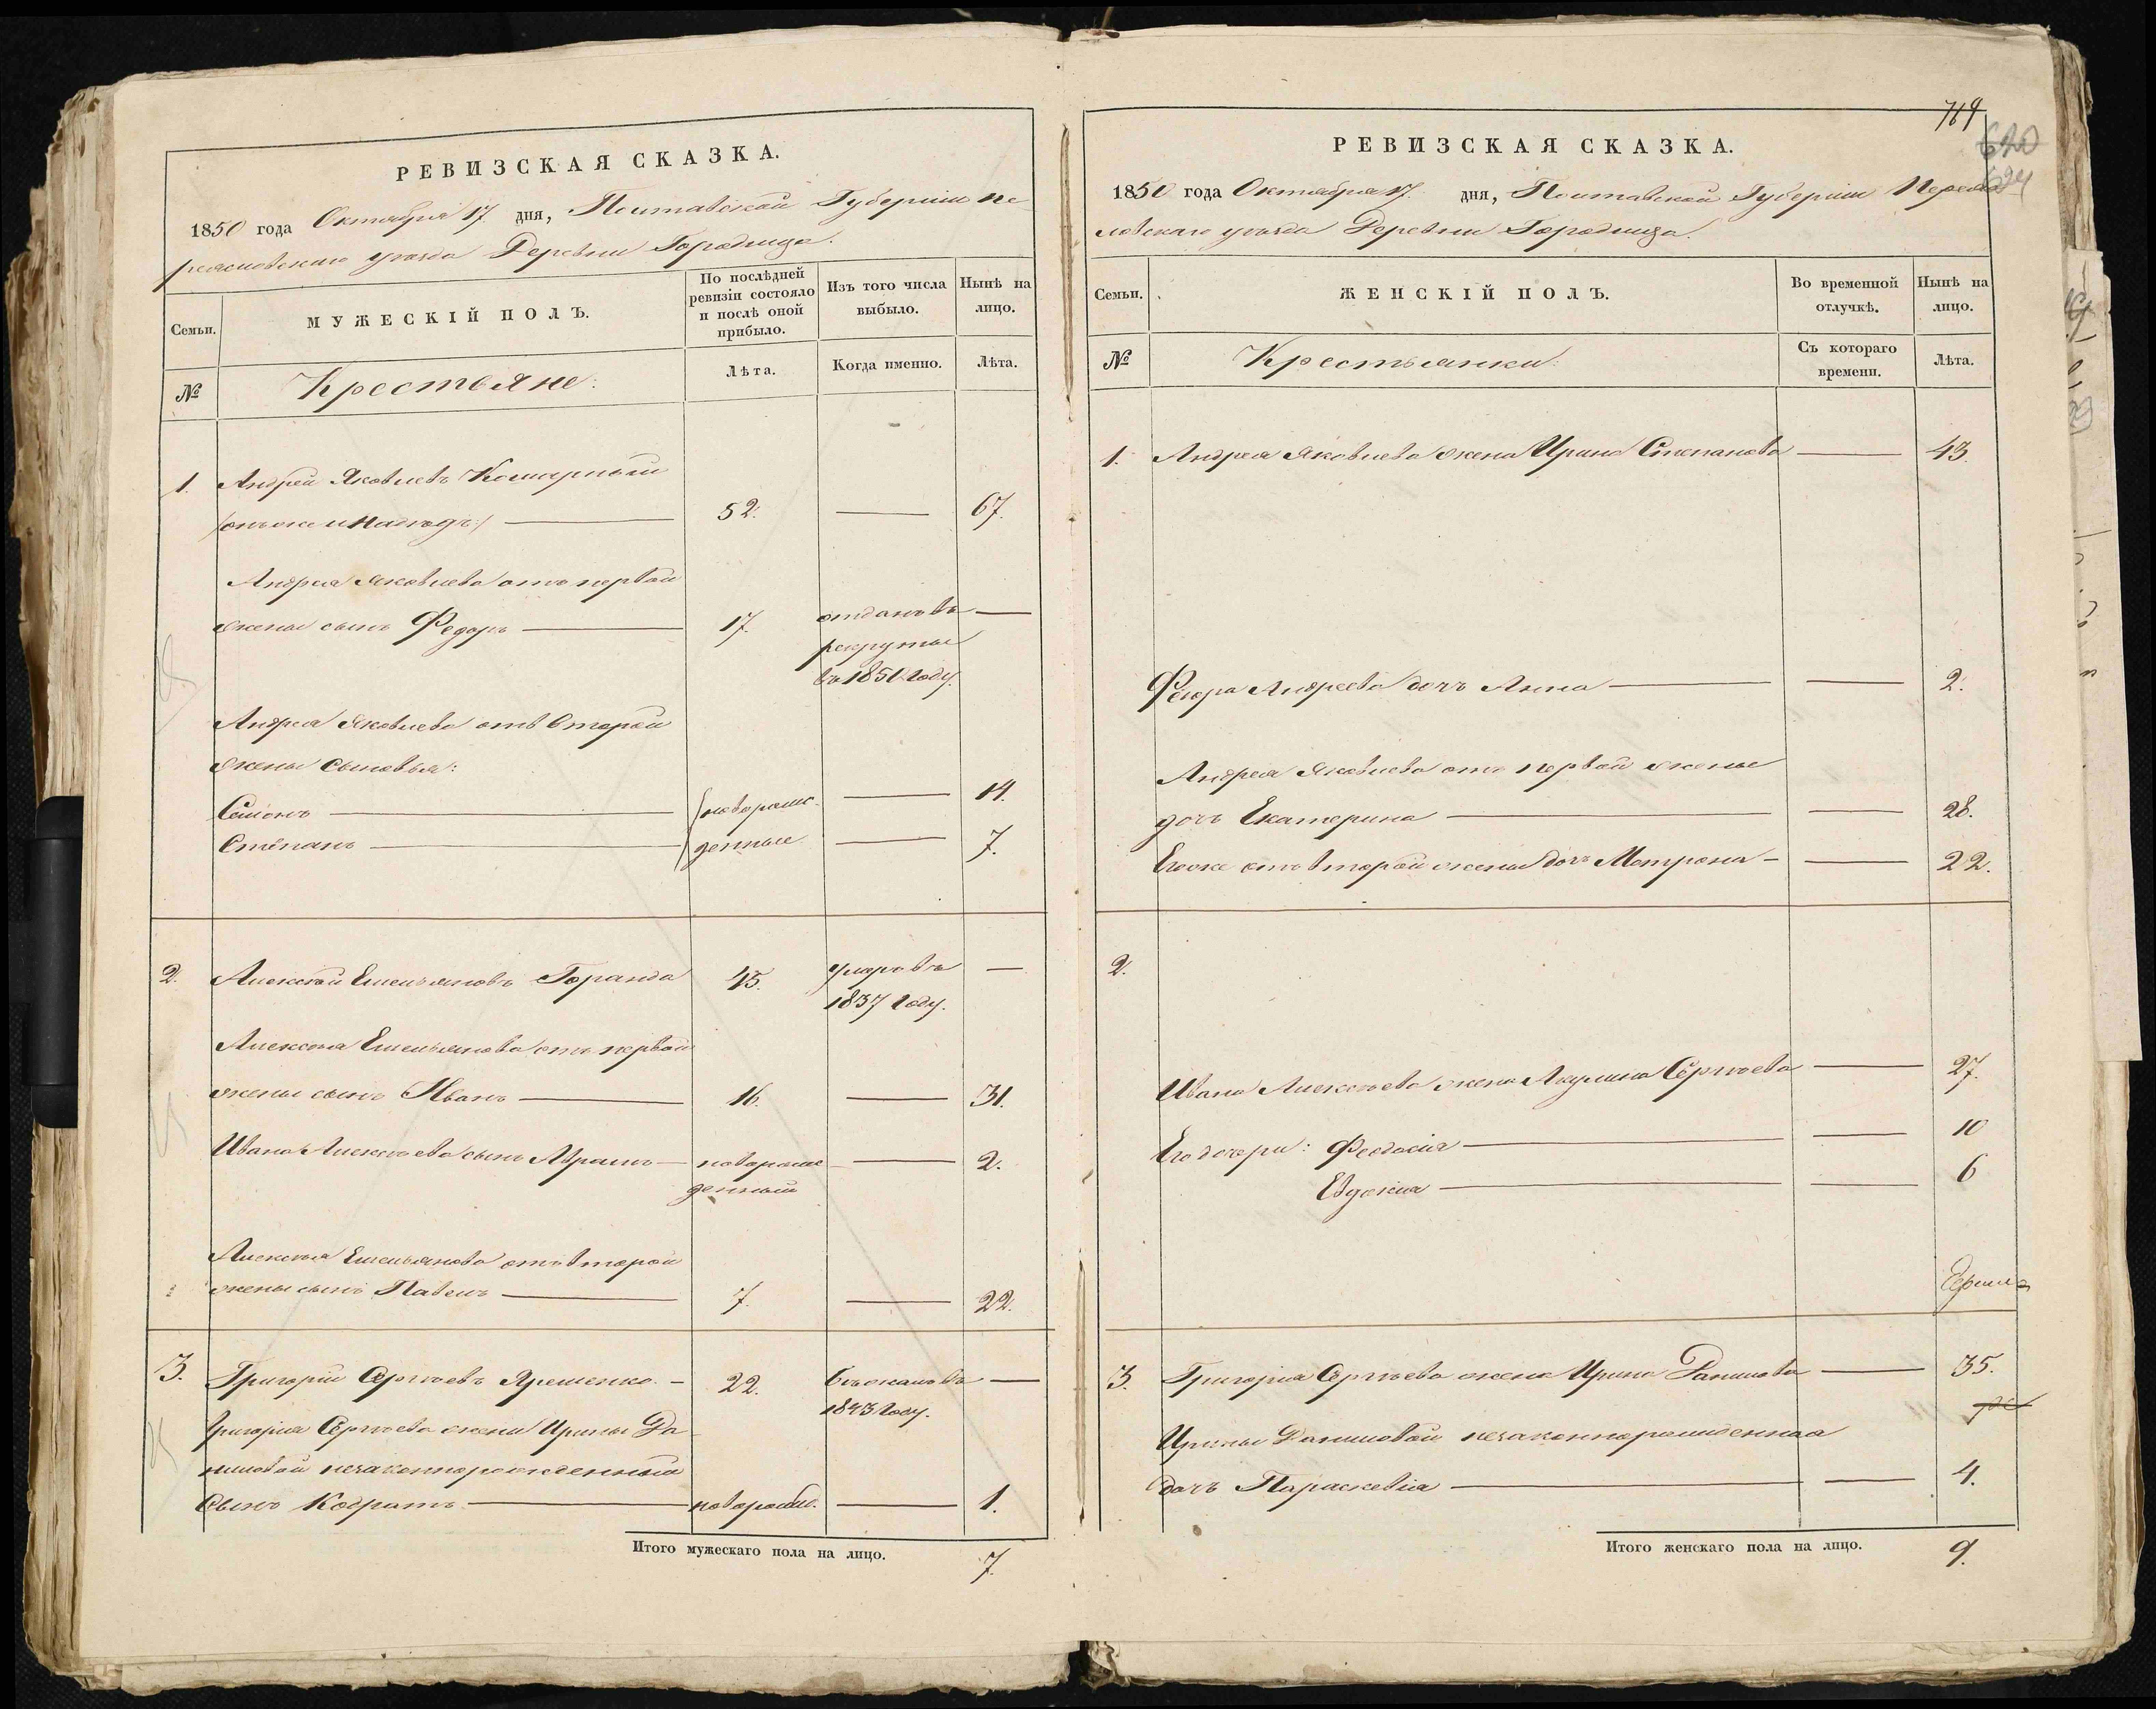 РЕВИЗСКАЯ СКАЗКА.
1850 года Октября 17. дня, Полтавской Губерніи Пе-
реяславскаго уезда Деревни Городища.
Семьи.
МУЖЕСКІЙ ПОЛЪ.
По послѣдней ревизіи состояло и послѣ оной прибыло.
Изъ того числа выбыло.
Нынѣ на лицо.
№
Крестьяне:
Лѣта.
Когда именно.
Лѣта.
1. Андрей Яковлевъ
52. — 67.
Андрея Яковлева отъ первой
жены сынъ Федоръ — 17. отданъ въ —
рекруты
въ 1850 Году.
Андрея Яковлева отъ второй
жены Сыновья:
Семенъ — новорож- — 14.
Степанъ — денные — 7.
2. Алексей Емельяновъ Горанда 45. умеръ въ —
1837 Году.
Алексея Емельянова отъ первой
жены сынъ Иванъ — 16. — 31.
Ивана Алексеева сынъ Абрамъ — новорож- — 2.
денный
Алексея Емельянова отъ второй
жены сынъ Павелъ — 7. — 22.
3. Григорій Сергеевъ Яременко — 22. бежалъ въ —
1843 Году.
Григорія Сергеева жены Ирины Да-
ниловой незаконнорожденный
Сынъ Кодратъ — новорожд. — 1.
Итого мужескаго пола на лицо. 7.
719
620
РЕВИЗСКАЯ СКАЗКА.
1850 года Октября 17. дня, Полтавской Губерніи Перея-
славскаго уезда Деревни Городища.
Семьи.
ЖЕНСКІЙ ПОЛЪ.
Во временной отлучкѣ.
Нынѣ на лицо.
№
Крестьянки:
Съ котораго времени.
Лѣта.
1. Андрея Яковлева жена Ирина Степанова — 43.
Федора Андреева дочь Анна — — 2.
Андрея Яковлева отъ первой жены
дочь Екатерина — — 28.
Егоже отъ второй жены дочь Матрона — — 22.
2.
Ивана Алексеева жена Акулина Сергеева — 27.
Его дочери: Феодосія — — 10
Евдокия — — 6
3. Григорія Сергеева жена Ирина Данилова — 35.
Ирины Даниловой незаконнорожденная
дочь Параскевія — — 4.
Итого женскаго пола на лицо. 9.